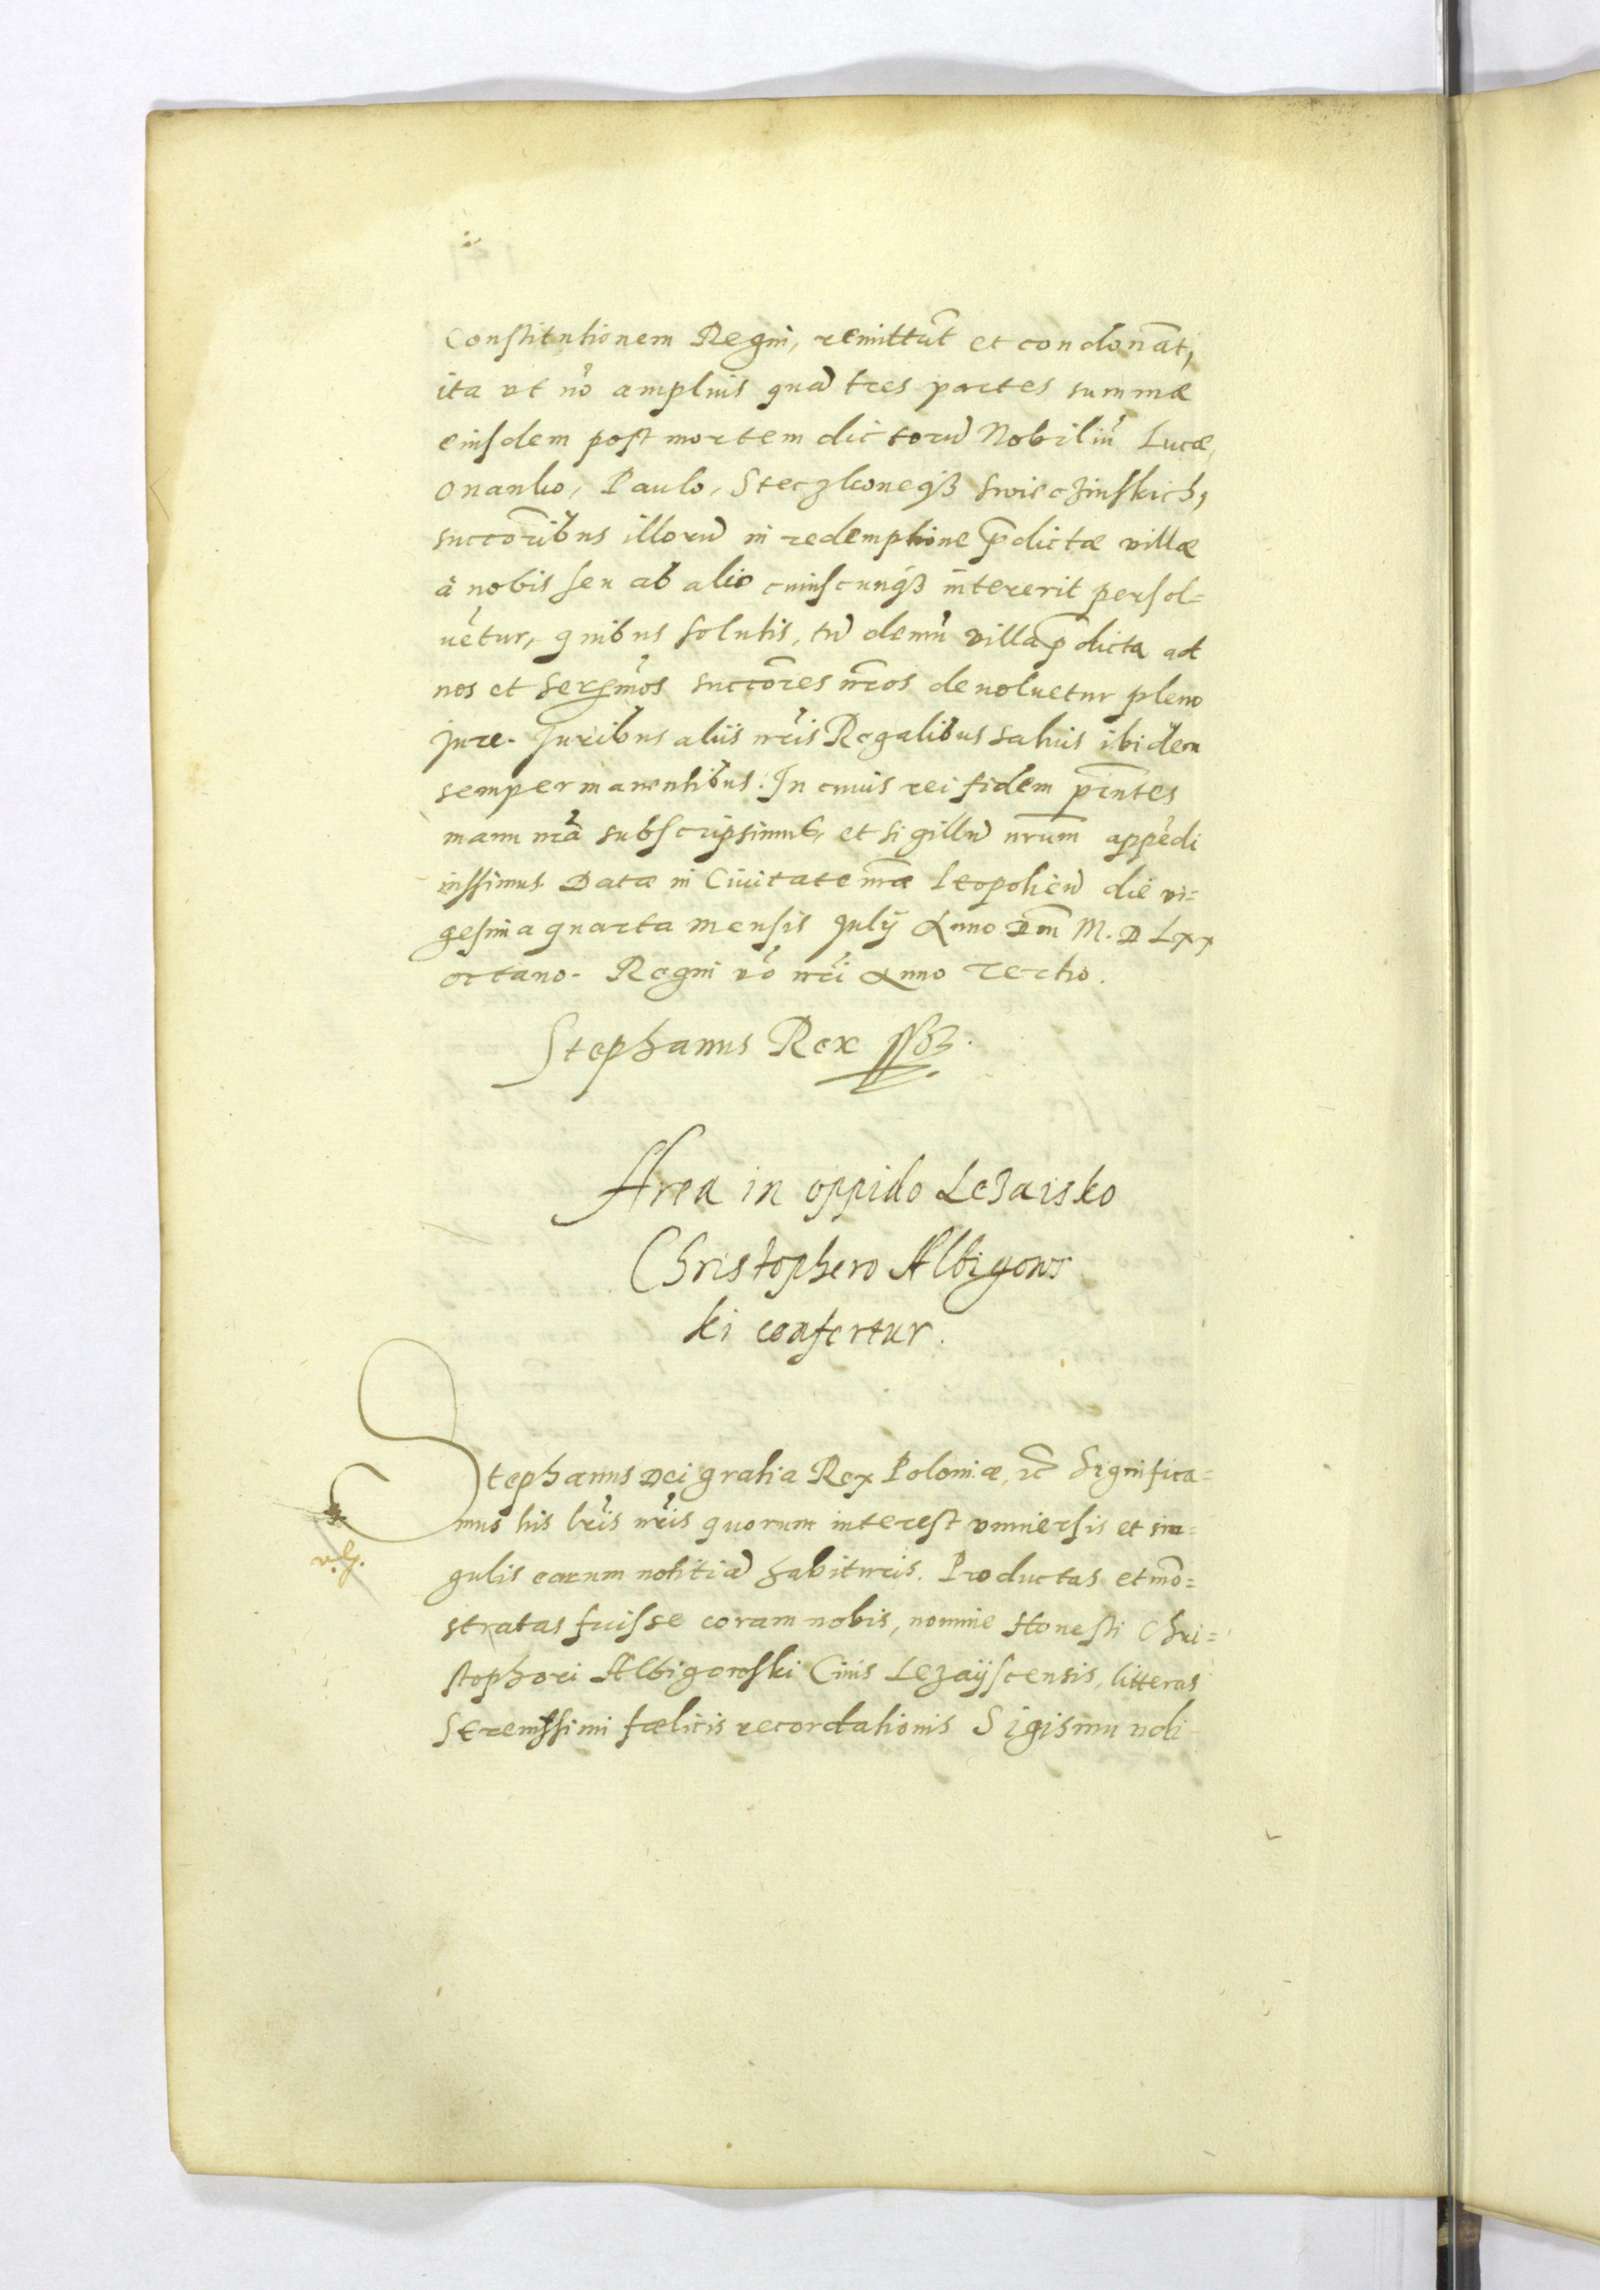 Constitutionem Regni, remittūt et condonāt,
ita ut nō amplius quā tres partes summæ
eiusdem post mortem dictorū Nobiliū Lucæ,
Onanko, Paulo, Steczkoneqꝫ Swisczinskich,
succōribus illorū in redemptione p̄dictæ villæ
à nobis seu ab alio cuiuscunqꝫ intererit persol=
uētur, quibus solutis, tū demū villa p̄dicta ad
nos et Serēmos succōres nr̄os deuoluetur pleno
jure. Juribus aliis nr̄is Regalibus saluis ibidem
semper manentibus. In cuius rei fidem pn̄tes
manu nr̄a subscripsimus, et sigillū nr̄um appēdi
iussimus. Datæ in Ciuitate nr̄a Leopoliēn die vi=
gesima quarta mensis Julij Anno Dm̄ M. D Lxx
octauo. Regni vō nr̄i Anno Tertio.
Stephanus Rex ssꝫ.
Area in oppido Lezaisko
Christophero Albigows
ki confertur.
Stephanus Dei gratia Rex Poloniæ, ꝛc̄ Significa=
mus his lr̄is nr̄is quorum interest vniuersis et sin=
gulis earum notitiā habituris. Productas et mō=
stratas fuisse coram nobis, nomine Honesti Chri=
stophori Albigowski Ciuis Lezayscensis, litteras
Serenissimi fœlicis recordationis Sigismundi